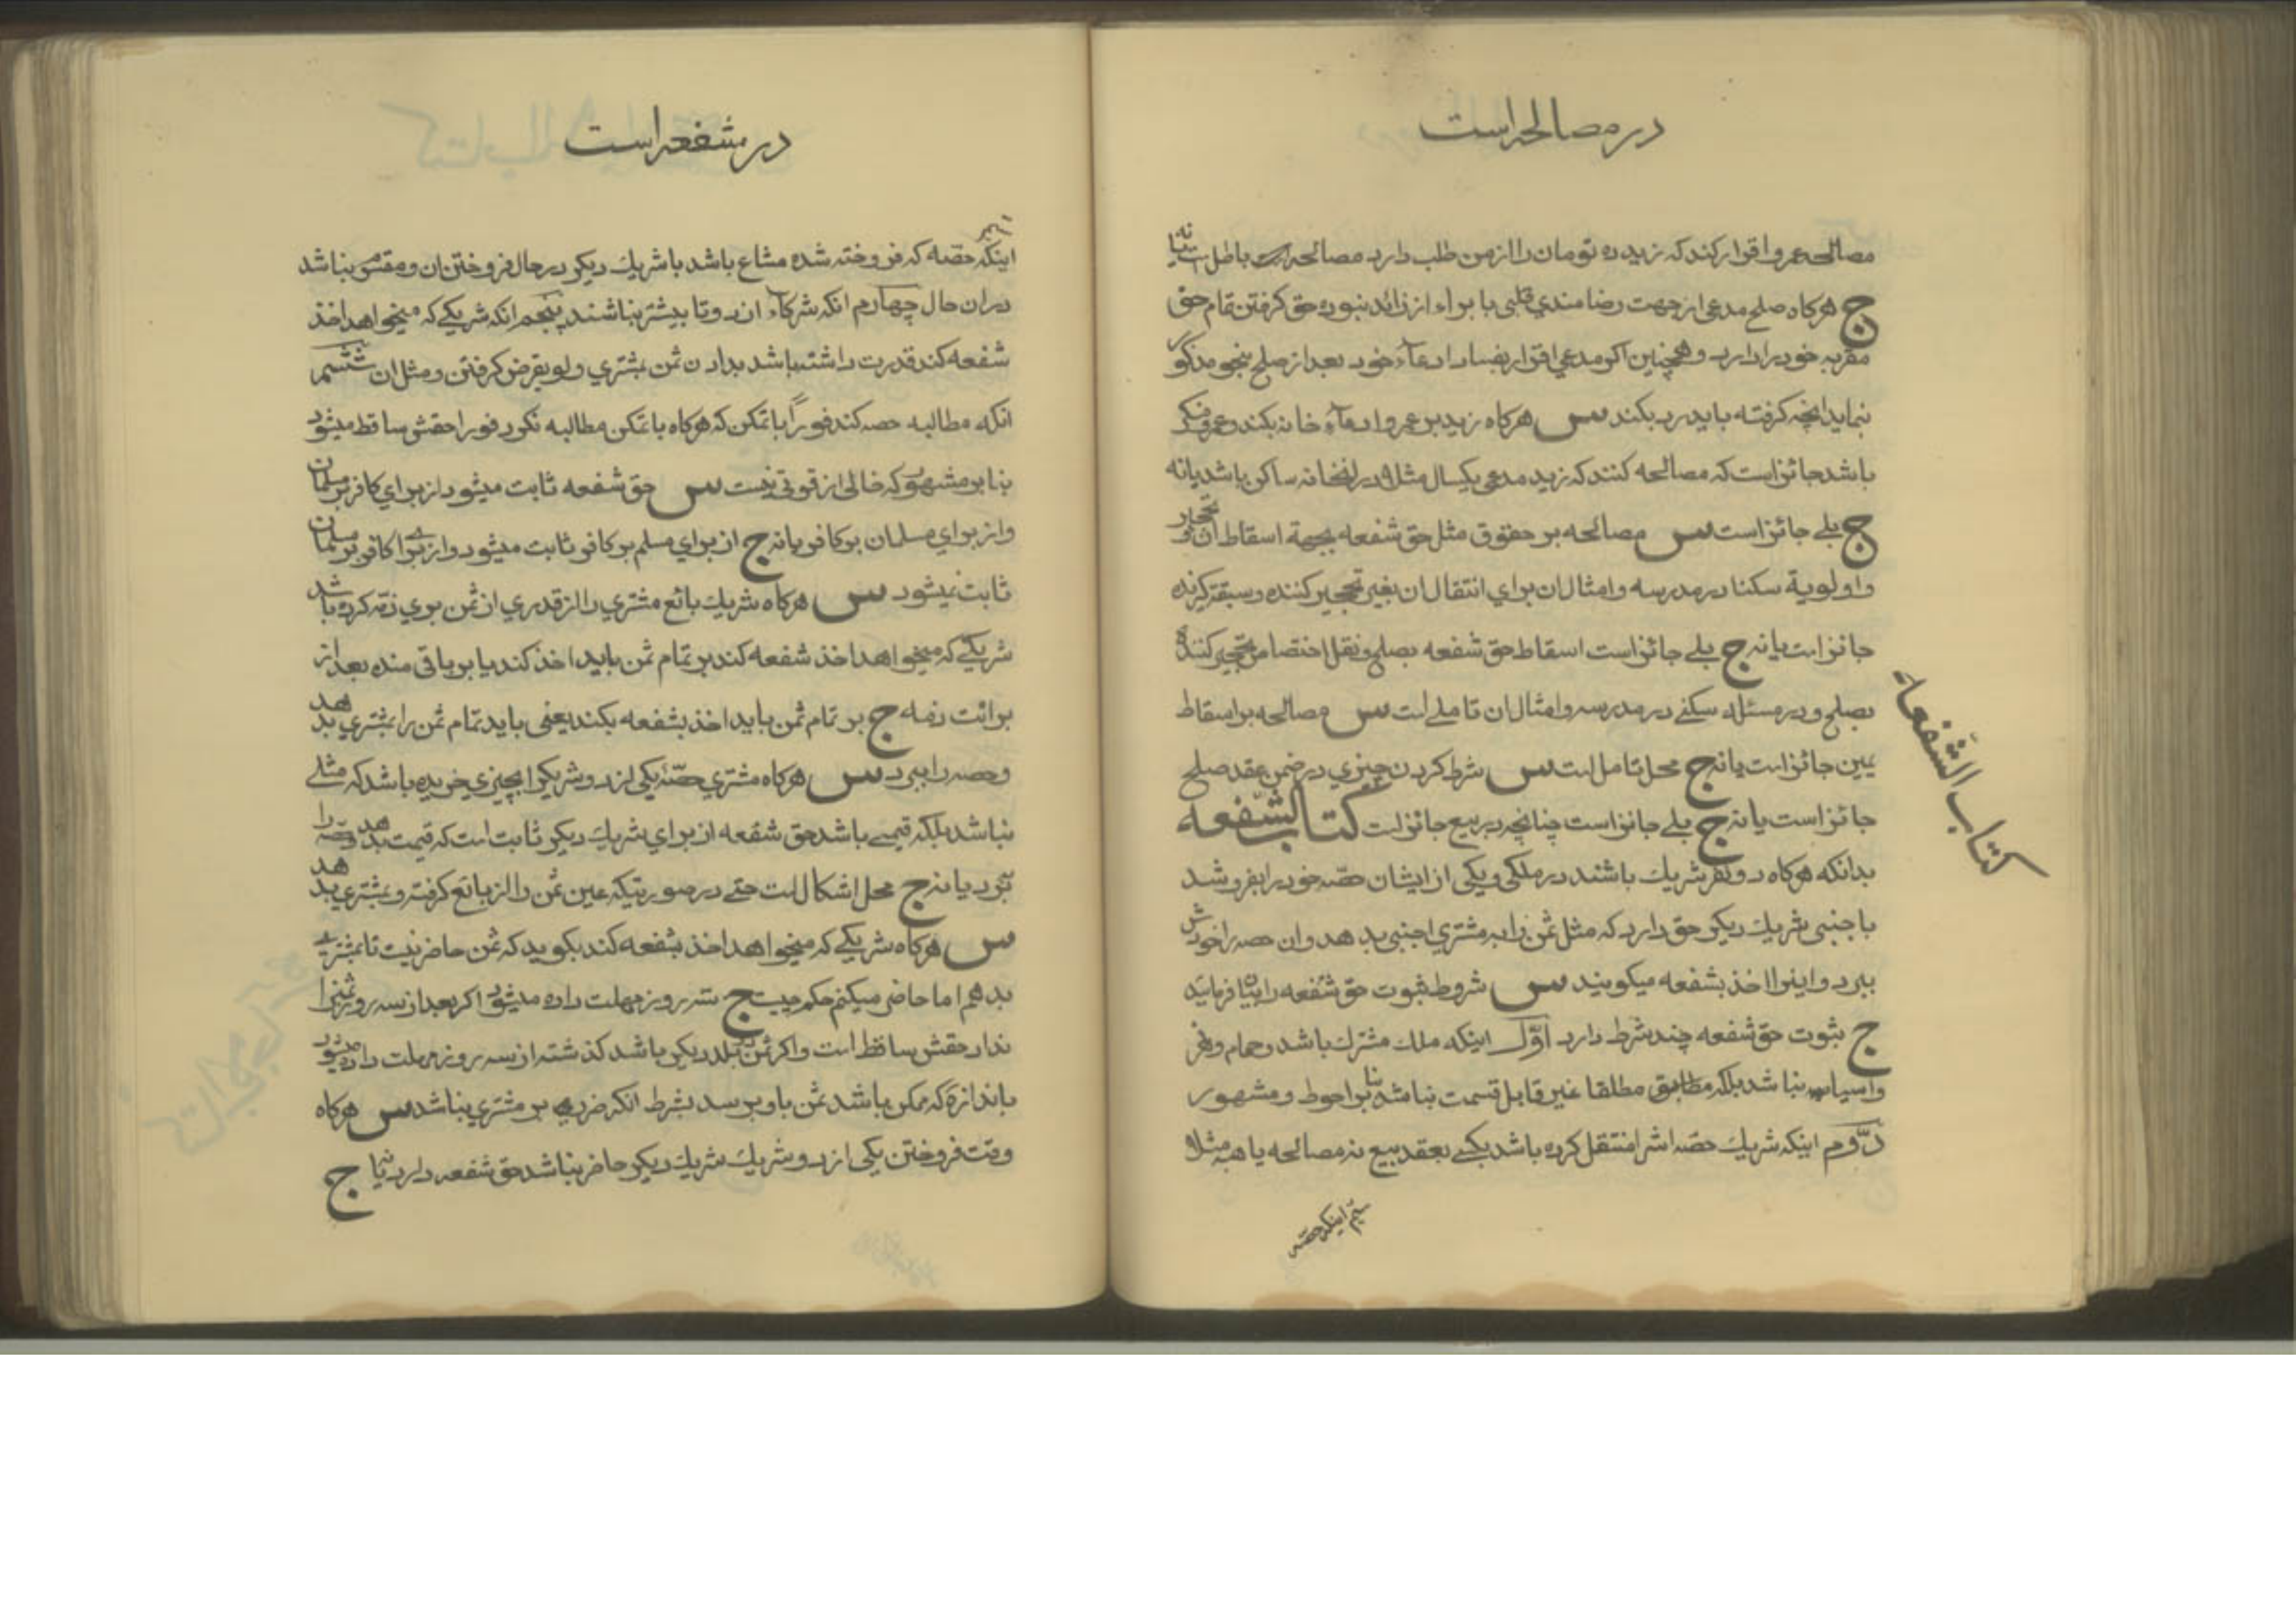 در مصالحه است
مصالحه عمرو اقرار کند که زید ده تومان را از من طلب دارد مصالحه باطل است یا نه
ج هرکاه صلح مدعی از جهت رضامندي قلبی با براء از زائد نبوده حق کرفتن تمام حق
مقر به خود را دارد و همچنین اکر مدعي اقرار بفساد ادعاء خود بعد از صلح بنحو مذکور
نماید انچه کرفته باید رد بکند س هرکاه زید بر عمرو ادعاء خانه بکند و عمرو منکر
باشد جائز است که مصالحه کنند که زید مدعی یکسال مثلا در انخانه ساکن باشد یا نه
ج بلے جائز است س مصالحه بر حقوق مثل حق شفعه بجهة اسقاط ان و تحجیر
و اولویة سکنا در مدرسه و امثال ان براي انتقال ان بغیر تحجیر کننده و سبقت کیرنده
جائز است یا نه ج بلے جائز است اسقاط حق شفعه بصلح و نقل اختصاص تحجیر کننده
بصلح و در مسئله سکنے در مدرسه و امثال ان تاملے است س مصالحه بر اسقاط
یمین جائز است یا نه ج محل تامل است س شرط کردن چیزي در ضمن عقد صلح
جائز است یا نه ج بلے جائز است چنانچه در بیع جائز است کتاب الشفعه
کتاب الشفعه
بدانکه هرکاه دو نفر شریك باشند در ملکی و یکی از ایشان حصه خود را بفروشد
باجنبی شریك دیکر حق دارد که مثل ثمن را به مشتري اجنبی بدهد و ان حصه را خودش
ببرد و اینرا اخذ بشفعه میکویند س شروط ثبوت حق شفعه را بیان فرمایند
ج ثبوت حق شفعه چند شرط دارد اوّل اینکه ملك مشترك باشد و حمام و نهر
و اسیاب نباشد بلکه مطلقا غیر قابل قسمت نباشد بنا بر احوط و مشهور
دوّم اینکه شریك حصه اش را منتقل کرده باشد بکسے بعقد بیع نه مصالحه یا هبه مثلا
سیّم اینکه حصه
در شفعه است
سیّم اینکه حصه که فروخته شده مشاع باشد با شریك دیکر در حال فروختن ان و مقسوم نباشد
در ان حال چهارم انکه شرکاء از دو تا بیشتر نباشند پنجم انکه شریکے که میخواهد اخذ
شفعه کند قدرت داشته باشد بدادن ثمن بمشتري و لو بقرض کرفتن و مثل ان ششم
انکه مطالبه حصه کند فوراً با تمکن که هرکاه با تمکن مطالبه نکرد فورا حقش ساقط میشود
بنا بر مشهور که خالی از قوتی نیست س حق شفعه ثابت میشود از براي کافر بر مسلمان
و از براي مسلمان بر کافر یا نه ج از براي مسلم بر کافر ثابت میشود و از براے کافر بر مسلمان
ثابت نمیشود س هرکاه شریك بائع مشتري را از قدري از ثمن بري ذمه کرده باشد
شریکے که میخواهد اخذ شفعه کند بر تمام ثمن باید اخذ کند یا بر باقی منده بعد از
برائت ذمه ج بر تمام ثمن باید اخذ بشفعه بکند یعنی باید تمام ثمن را بمشتري بدهد
و حصه را ببرد س هرکاه مشتري حصّه یکی از دو شریك را بچیزي خریده باشد که مثلے
نباشد بلکه قیمے باشد حق شفعه از براي شریك دیکر ثابت است که قیمت بدهد و حصه را
ببرد یا نه ج محل اشکال است حتے در صورتیکه عین ثمن را از بائع کرفته و بمشتري بدهد
س هرکاه شریکے که میخواهد اخذ بشفعه کند بکوید که ثمن حاضر نیست تا بمشترے
بدهم اما حاضر میکنم حکم چیست ج سه روز مهلت داده میشود اکر بعد از سه روز ثمن را
نداد حقش ساقط است و اکر ثمن ببلد دیکر باشد کذشته از سه روز مهلت داده میشود
باندازۀ که ممکن باشد ثمن باو برسد بشرط انکه ضررے بر مشتري نباشد س هرکاه
وقت فروختن یکی از دو شریك شریك دیکر حاضر نباشد حق شفعه دارد یا نه ج